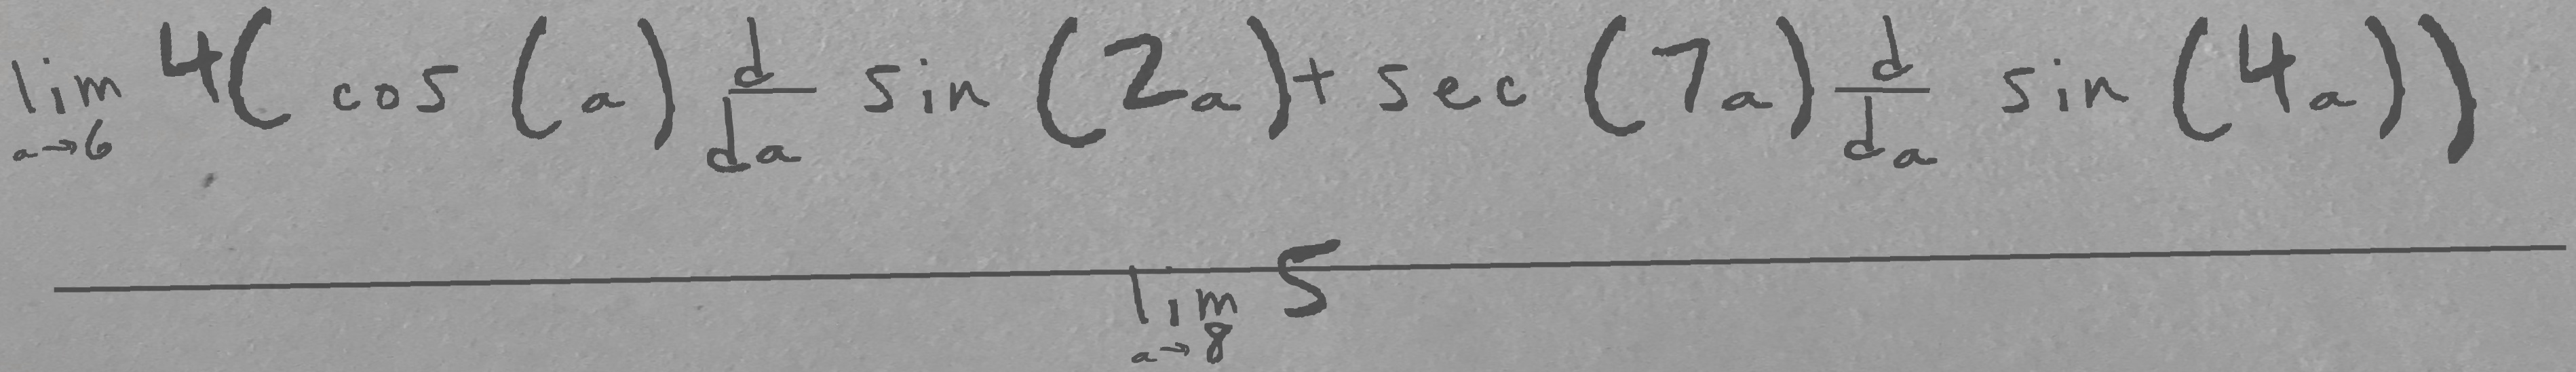 \frac{\lim_{a \to 6} 4\left(\cos\left(a\right)\frac{d}{da}\sin\left(2a\right)+\sec\left(7a\right)\frac{d}{da}\sin\left(4a\right)\right)}{\lim_{a \to 8} 5}